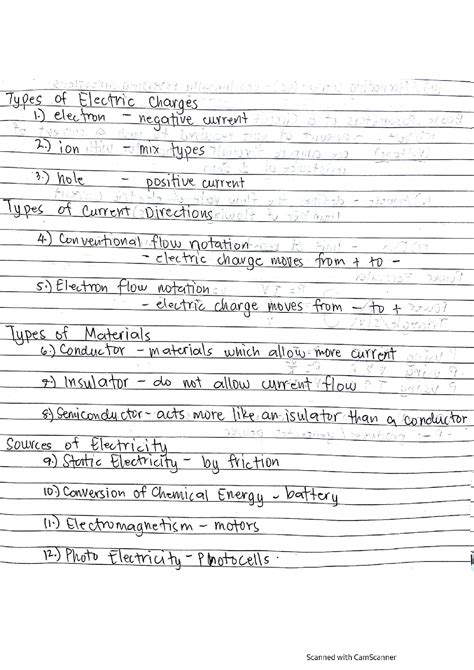 Types of Electric Charges
1.) electron - negative current
2.) ion - mix types
3.) hole - positive current
Types of Current Directions
4.) Conventional flow notation
- electric charge moves from + to -
5.) Electron flow notation
- electric charge moves from - to +
Types of Materials
6.) Conductor - materials which allow more current
7.) Insulator - do not allow current flow
8.) Semiconductor - acts more like an isulator than a conductor
Sources of Electricity
9.) Static Electricity - by friction
10.) Conversion of Chemical Energy - battery
11.) Electromagnetism - motors
12.) Photo Electricity - Photocells.
Scanned with CamScanner